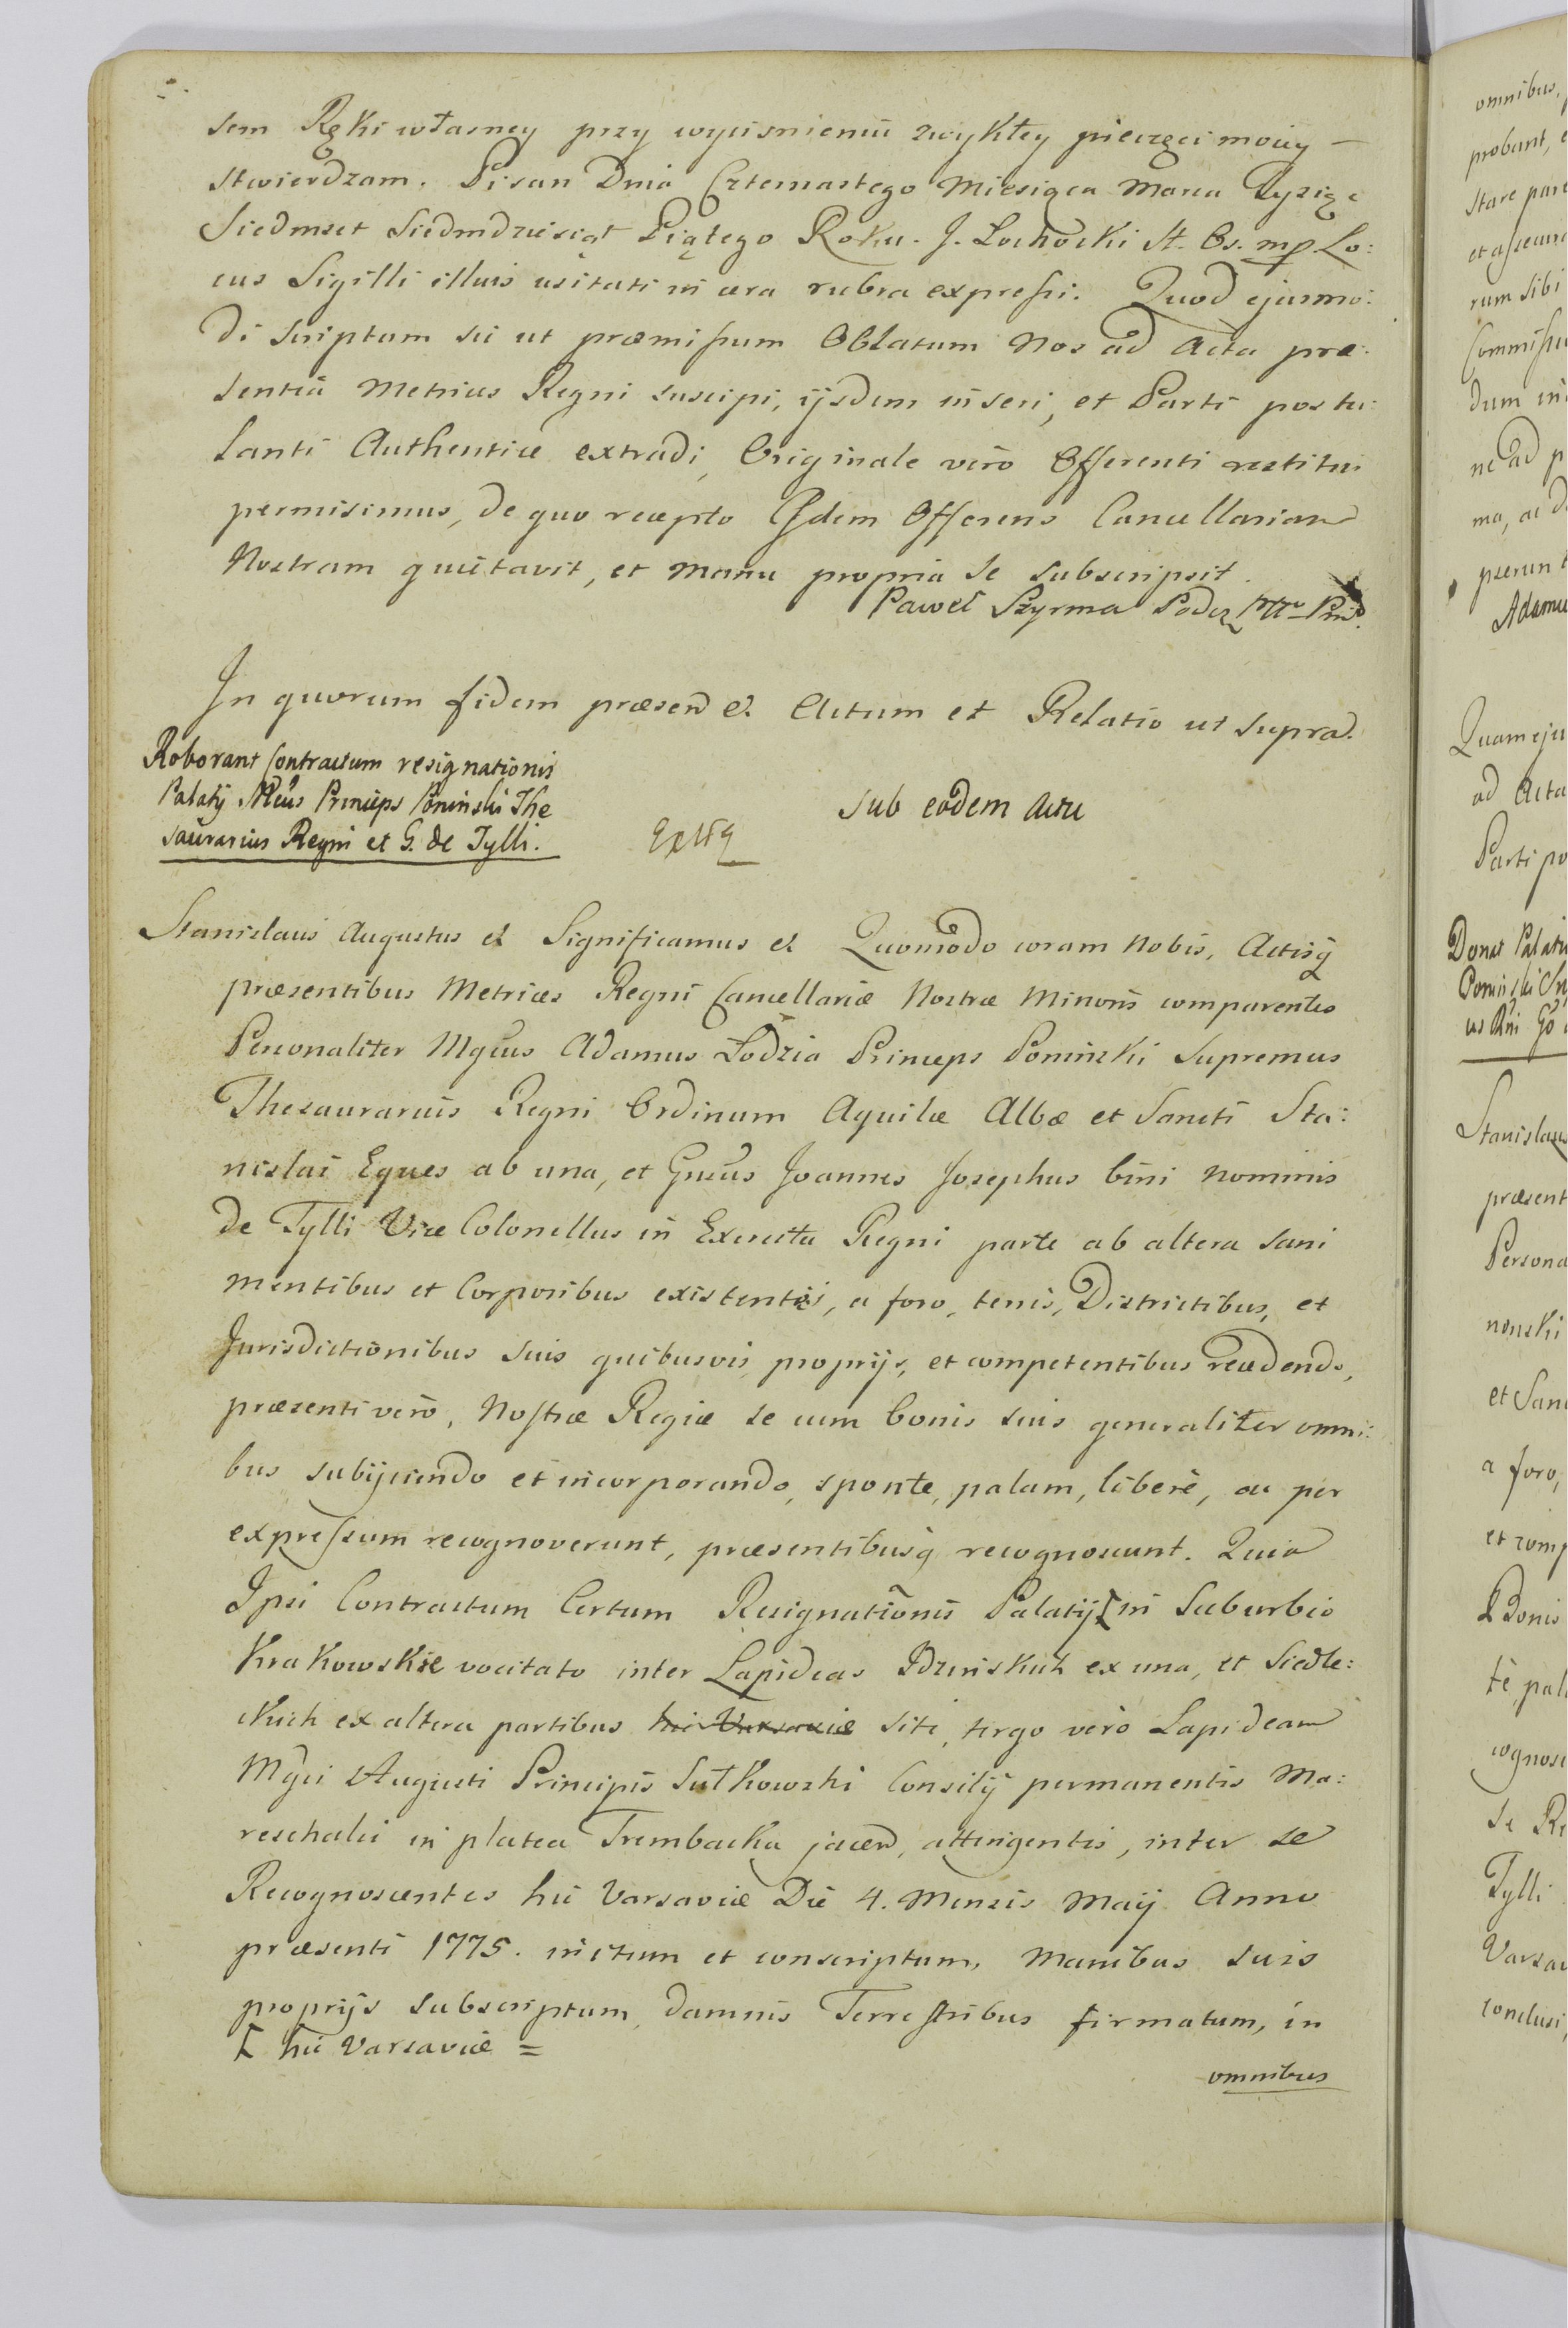 sem Ręki własney przy wyciśnieniu zwykłey pieczęci moiey –
stwierdzam. Pisan Dnia Czternastego Miesiąca Marca Tysiąc
Siedmset Siedmdziesiąt Piątego Roku. J. Lochocki St. Os. mp. Lo:
cus Sigilli illius usitati in cera rubra expressi. Quod ejusmo:
di scriptum sic ut præmissum Oblatum Nos ad Acta præ:
sentia Metrices Regni suscipi, ijsdem inseri, et Parti postu:
lanti Authentice extradi, Originale vero Offerenti restitui
permisimus, de quo recepto Eidem Offerens Cancellariam
Nostram quietavit, et manu propria se subscripsit.
Paweł Szyrma Podcz
In quorum fidem præsen &. Actum et Relatio ut supra.
Roborant Contractum resignationis
Palatij Princeps Poninski The
saurarius Regni et G. de Tylli.
Sub eodem actu
Stanislaus Augustus et Significamus et Quomodo coram Nobis, Actisq
præsentibus Metrices Regni Cancellariæ Nostræ Minoris comparentes
Personaliter Mgcus Adamus Łodzia Princeps Poninski Supremus
Thesaurarius Regni Ordinum Aquilæ Albæ et Sancti Sta:
nislai Eques ab una, et Gnsus Joannes Josephus bini nominis
de Tylli Vice Colonellus in Exercitu Regni parte ab altera sani
mentibus et Corporibus existentes, a foro, terris, Districtibus, et
Jurisdictionibus suis quibusvis proprijs, et competentibus recedendo,
præsenti vero, Nostræ Regiæ se cum bonis suis generaliter omni:
bus subijciendo et incorporando, sponte, palam, liberè, ac per
expressum recognoverunt, præsentibusq recognoscunt. Quia
Ipsi Contractum Certum Resignationis Palatij [in Suburbio
Krakowskie vocitato inter Lapideas Idzinskich ex una, et Siedle:
ckich ex altera partibus hic Varsaviæ siti, tergo verò Lapideam
Mgci Augusti Principis Sułkowski Consilij permanentis Ma:
reschalci in platea Trembacka jacen, attingentis, inter se
Recognoscentes hic Varsaviæ Die 4. Mensis Maij Anno
præsenti 1775. initum et conscriptum, Manibus suis
proprijs subscriptum, damnis Terrestribus firmatum, in
[ hic Varsaviæ =
omnibus
omnibus,
probant, e
stare pare
et assecura
rum sibi
Commissu
dum in
ne ad p
ma, ac d
pserunt
Adamu
Quam eju
ad Acta
Parti po
Donat Palati
Poninski Su
us Rni Go
Stanislaus
præsent
Persona
nonski
et San
a foro,
et comp
Bonis
te, pal
cognosc
se Re
Tylli
Varsav
conclusi